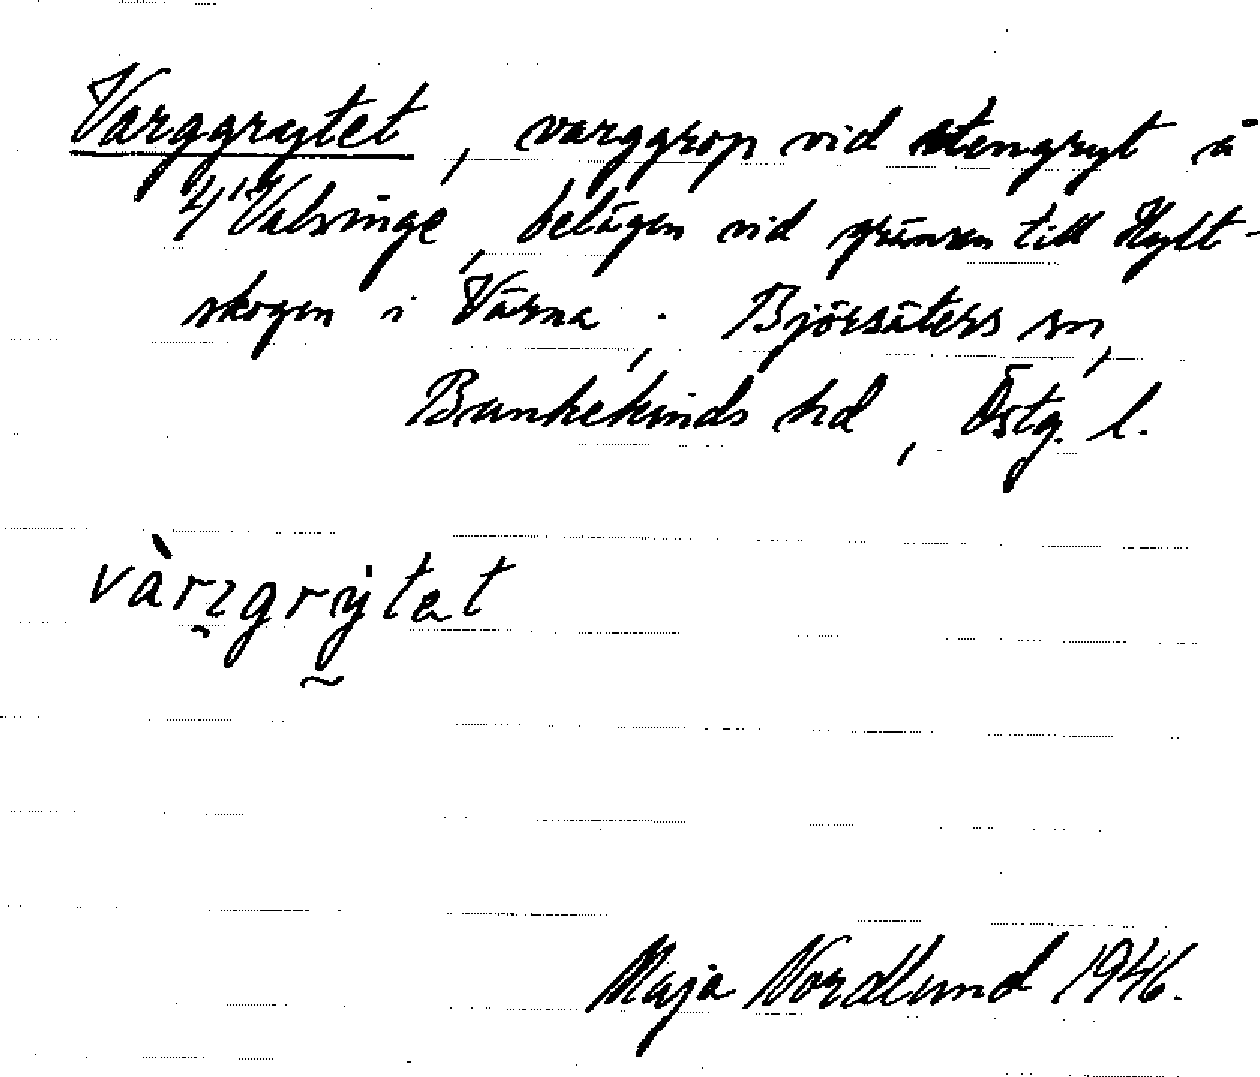 Varggrytet, varggrop vid stengryt å
4 1/4 Valsvinge, belägen vid gränsen till Hylt-
skogen i Värna. Björsäters sn,
Bankekinds hd, Östg. l.
vàrzgrẏtet
Maja Nordlund 1946.